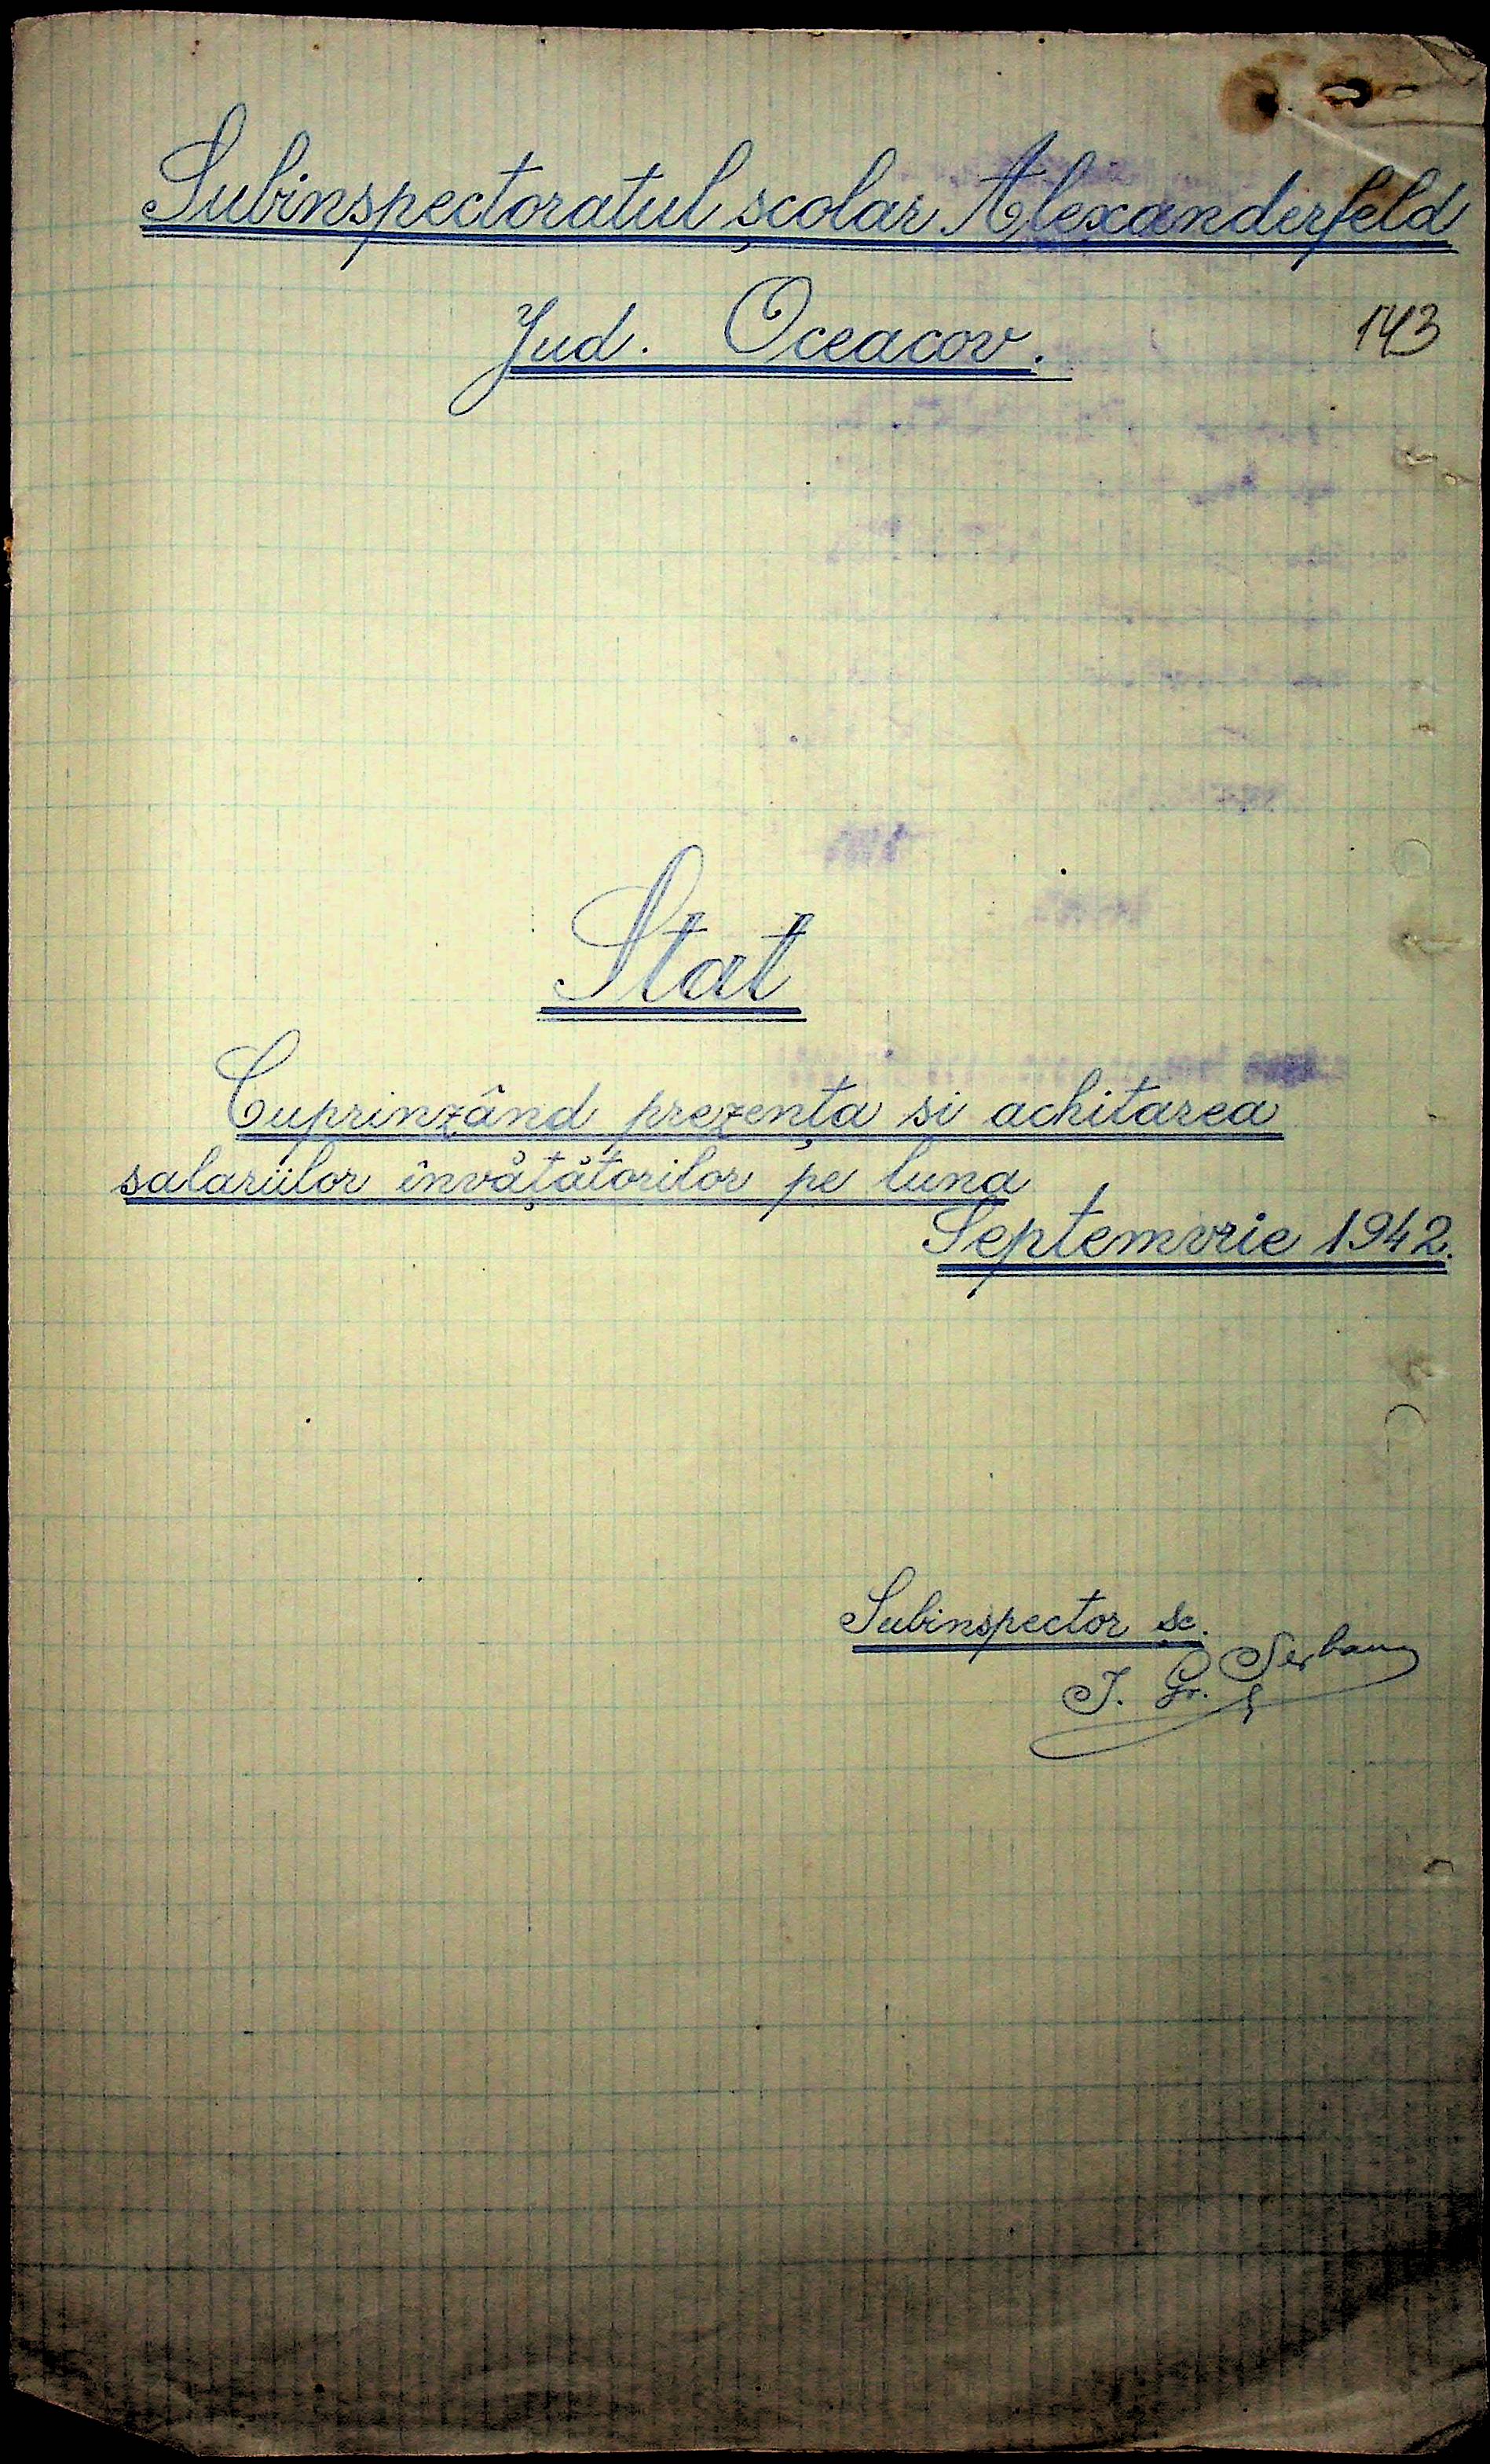 Subinspectoratul școlar Alexanderfeld
Jud. Oceacov.
143
Stat
Cuprinzând prezența si achitarea
salariilor învățătorilor pe luna
Septemvrie 1942.
Subinspector șc.
I. Gr. Șerban